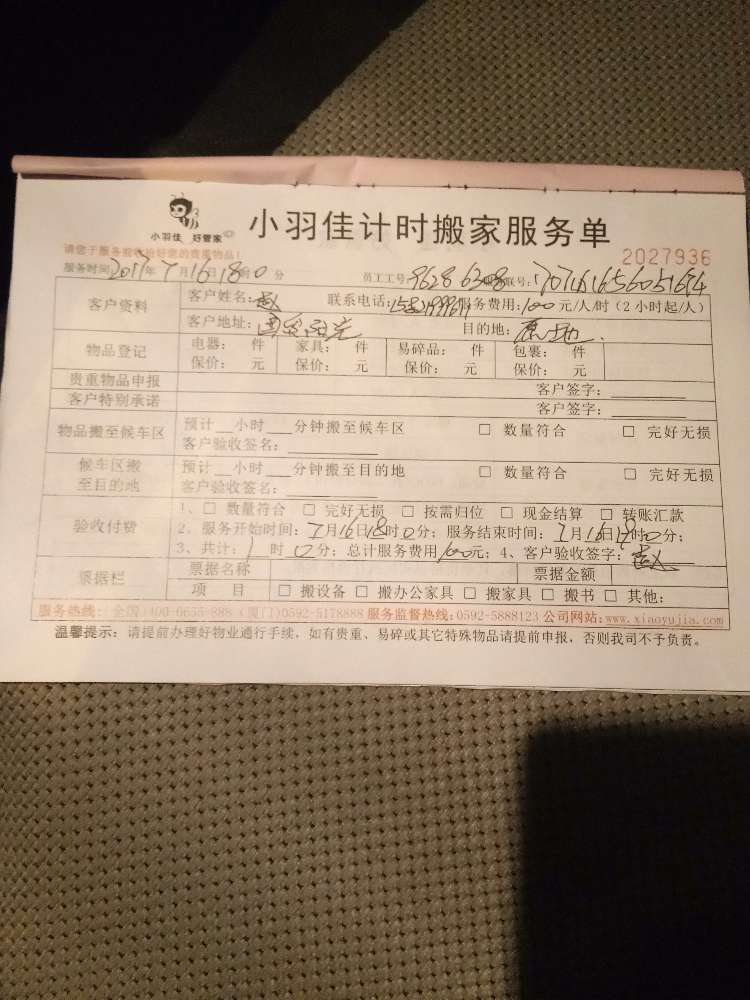 小羽佳 好管家 小羽佳计时搬家服务单
请您于服务前收拾好您的贵重物品! 2027936
服务时间2017年7月16日18时0分 员工工号:9628 6308 服务联号:
客户资料 客户姓名:赵 联系电话: 服务费用:100元/人/时(2小时起/人)
客户地址: 目的地:原地.
物品登记 电器: 件 家具: 件 易碎品: 件 包裹: 件
保价: 元 保价: 元 保价: 元 保价: 元
贵重物品申报 客户签字:
客户特别承诺 客户签字:
物品搬至候车区 预计__小时___分钟搬至候车区 □ 数量符合 □ 完好无损
客户验收签名:
候车区搬至目的地 预计__小时___分钟搬至目的地 □ 数量符合 □ 完好无损
客户验收签名:
验收付费 1、□ 数量符合 □ 完好无损 □ 按需归位 □ 现金结算 □ 转账汇款
2、服务开始时间:7月16日18时0分; 服务结束时间:7月16日19时0分;
3、共计:1时0分; 总计服务费用100元; 4、客户验收签字:赵
票据栏 票据名称 票据金额
项 目 □ 搬设备 □ 搬办公家具 □ 搬家具 □ 搬书 □ 其他:
服务热线: 全国:400-6655-888 (厦门)0592-5178888 服务监督热线:0592-5888123 公司网站:www.xiaoyujia.com
温馨提示: 请提前办理好物业通行手续,如有贵重、易碎或其它特殊物品请提前申报,否则我司不予负责。